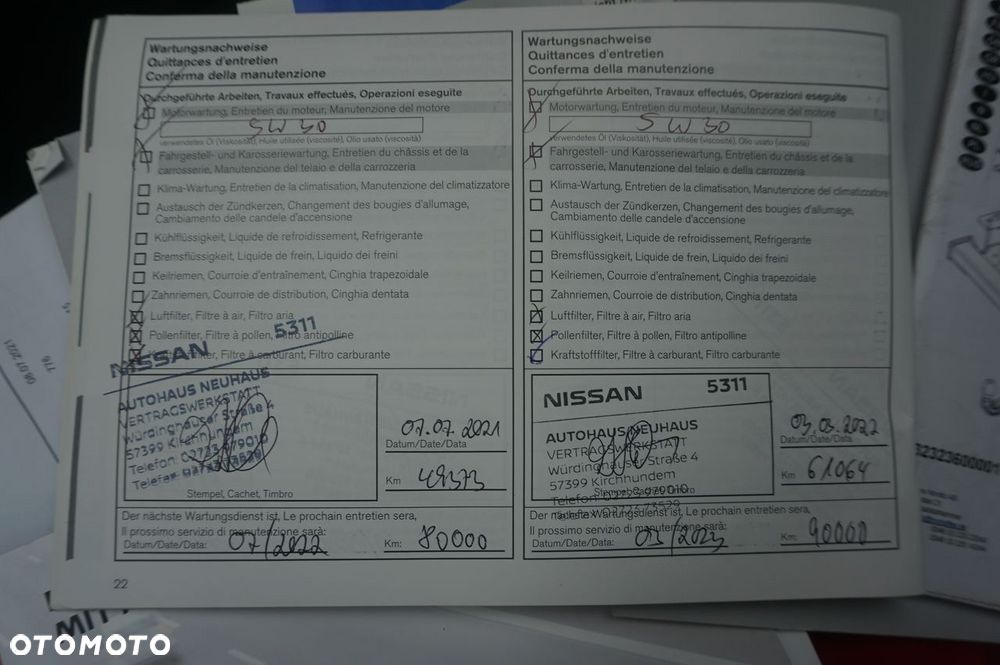 Wartungsnachweise
Quittances d'entretien
Conferma della manutenzione
Durchgeführte Arbeiten, Travaux effectués, Operazioni eseguite
Motorwartung, Entretien du moteur, Manutenzione del motore
5W30
verwendetes Öl (Viskosität), Huile utilisée (viscosité), Olio usato (viscosità)
Fahrgestell- und Karosseriewartung, Entretien du châssis et de la
carrosserie, Manutenzione del telaio e della carrozzeria
Klima-Wartung, Entretien de la climatisation, Manutenzione del climatizzatore
Austausch der Zündkerzen, Changement des bougies d'allumage,
Cambiamento delle candele d'accensione
Kühlflüssigkeit, Liquide de refroidissement, Refrigerante
Bremsflüssigkeit, Liquide de frein, Liquido dei freini
Keilriemen, Courroie d'entraînement, Cinghia trapezoidale
Zahnriemen, Courroie de distribution, Cinghia dentata
Luftfilter, Filtre à air, Filtro aria
Pollenfilter, Filtre à pollen, Filtro antipolline
Filtre à carburant, Filtro carburante
NISSAN 5311
AUTOHAUS NEUHAUS
VERTRAGSWERKSTATT
Würdinghauser Straße 4
57399 Kirchhundem
Telefon: 02723 979010
Telefax:
Stempel, Cachet, Timbro
07.07.2021
Datum/Date/Data
Km 49373
Der nächste Wartungsdienst ist, Le prochain entretien sera,
Il prossimo servizio di manutenzione sarà:
Datum/Date/Data: 07/2022 Km: 80000
22
Wartungsnachweise
Quittances d'entretien
Conferma della manutenzione
Durchgeführte Arbeiten, Travaux effectués, Operazioni eseguite
Motorwartung, Entretien du moteur, Manutenzione del motore
5W30
verwendetes Öl (Viskosität), Huile utilisée (viscosité), Olio usato (viscosità)
Fahrgestell- und Karosseriewartung, Entretien du châssis et de la
carrosserie, Manutenzione del telaio e della carrozzeria
Klima-Wartung, Entretien de la climatisation, Manutenzione del climatizzatore
Austausch der Zündkerzen, Changement des bougies d'allumage,
Cambiamento delle candele d'accensione
Kühlflüssigkeit, Liquide de refroidissement, Refrigerante
Bremsflüssigkeit, Liquide de frein, Liquido dei freini
Keilriemen, Courroie d'entraînement, Cinghia trapezoidale
Zahnriemen, Courroie de distribution, Cinghia dentata
Luftfilter, Filtre à air, Filtro aria
Pollenfilter, Filtre à pollen, Filtro antipolline
Kraftstofffilter, Filtre à carburant, Filtro carburante
NISSAN 5311
AUTOHAUS NEUHAUS
VERTRAGSWERKSTATT
Würdinghauser Straße 4
57399 Kirchhundem
Stempel, Cachet, Timbro
03.03.2022
Datum/Date/Data
Km 61064
Der nächste Wartungsdienst ist, Le prochain entretien sera,
Il prossimo servizio di manutenzione sarà:
Datum/Date/Data: 03/2023 Km: 90000
08.07.2021
776
OTOMOTO